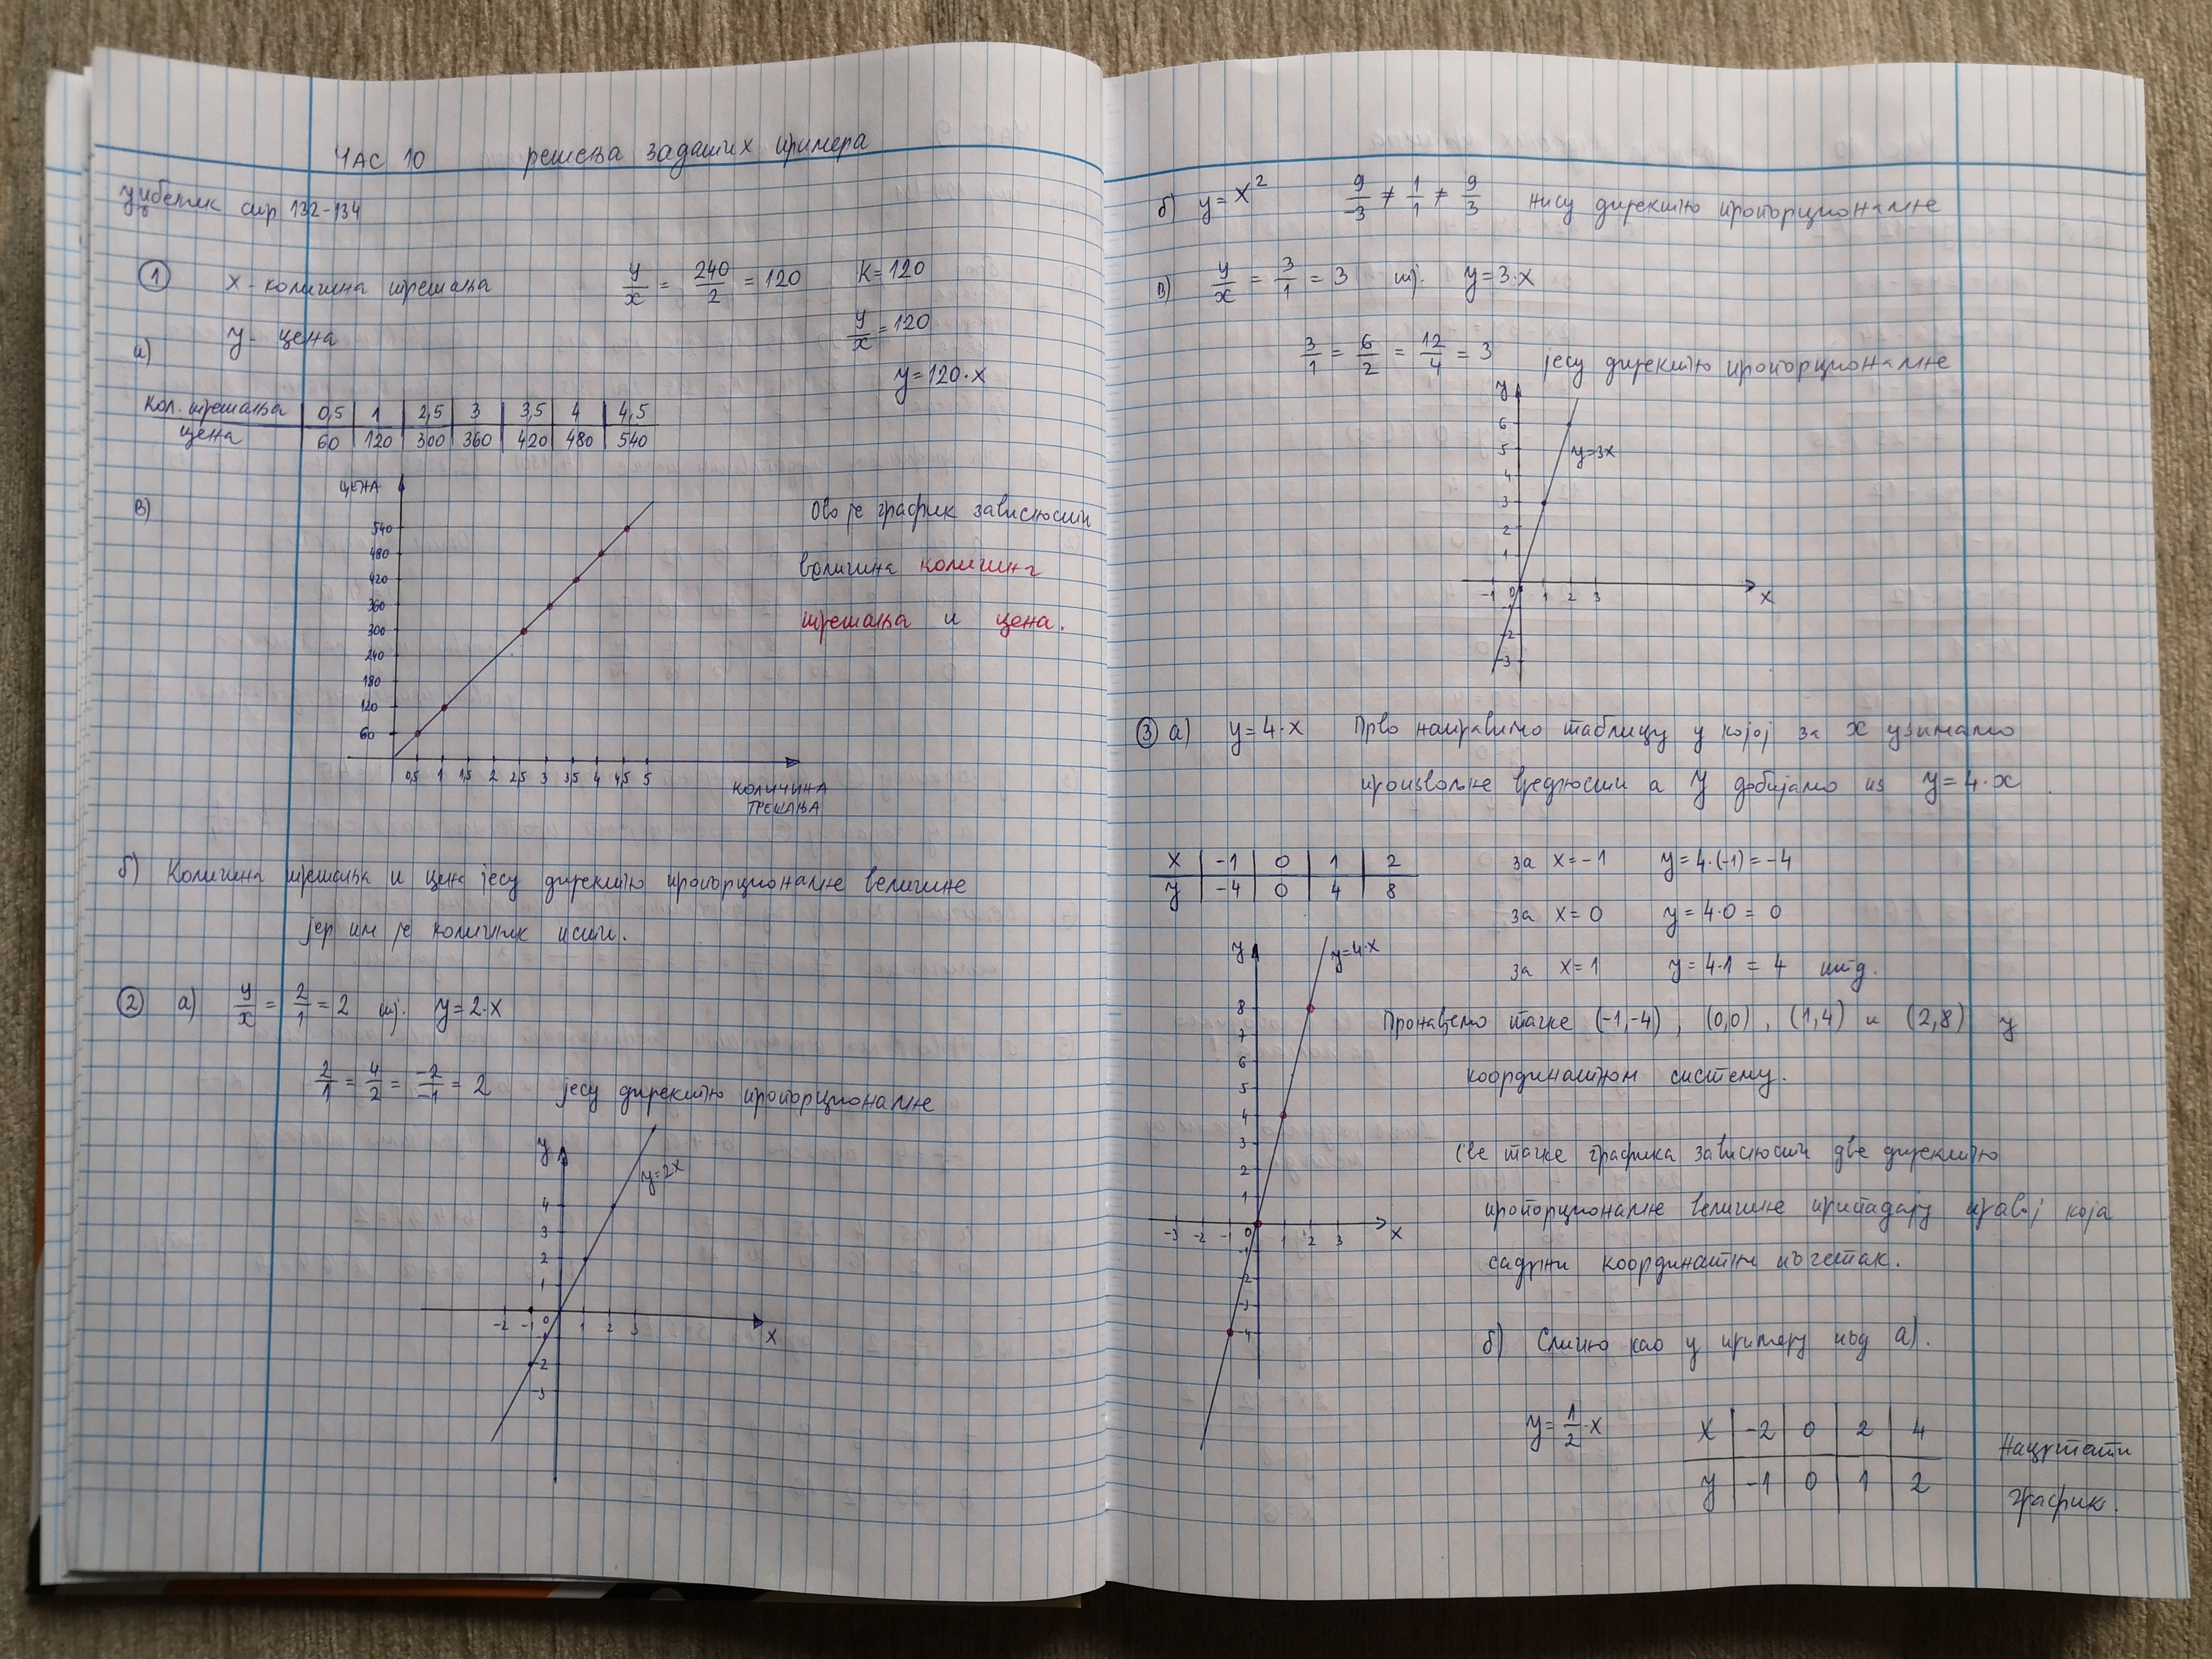 ЧАС 10 решења задатих примера
уџбеник стр 132-134
① x - количина трешања y/x = 240/2 = 120 K=120
y - цена y/x = 120
а) y=120·x
кол. трешања | 0,5 | 1 | 2,5 | 3 | 3,5 | 4 | 4,5
цена | 60 | 120 | 300 | 360 | 420 | 480 | 540
в)
ЦЕНА
540
480
420
360
300
240
180
120
60
0,5 1 1,5 2 2,5 3 3,5 4 4,5 5
КОЛИЧИНА
ТРЕШАЊА
Ово је график зависности
величина количина
трешања и цена.
б) Количина трешања и цена јесу директно пропорционалне величине
јер им је количник исти.
② а) y/x = 2/1 = 2 тј. y=2·x
2/1 = 4/2 = -2/-1 = 2 јесу директно пропорционалне
y
y=2x
4
3
2
1
-2 -1 0 1 2 3 x
-1
-2
-3
б) y=x² 9/-3 ≠ 1/1 ≠ 9/3 нису директно пропорционалне
в) y/x = 3/1 = 3 тј. y=3·x
3/1 = 6/2 = 12/4 = 3 јесу директно пропорционалне
y
6
5 y=3x
4
3
2
1
-1 0 1 2 3 x
-1
-2
-3
③ а) y=4·x Прво направимо таблицу у којој за x узимамо
произвољне вредности а y добијамо из y=4·x
x | -1 | 0 | 1 | 2
y | -4 | 0 | 4 | 8
за x=-1 y=4·(-1)=-4
за x=0 y=4·0=0
за x=1 y=4·1=4 итд.
y
y=4·x
8
7
6
5
4
3
2
1
-3 -2 -1 0 1 2 3 x
-1
-2
-3
-4
Пронађемо тачке (-1,-4), (0,0), (1,4) и (2,8) у
координатном систему.
Све тачке графика зависности две директно
пропорционалне величине припадају правој која
садржи координатни почетак.
б) Слично као у примеру под а).
y=1/2·x
x | -2 | 0 | 2 | 4
y | -1 | 0 | 1 | 2
Нацртати
график.